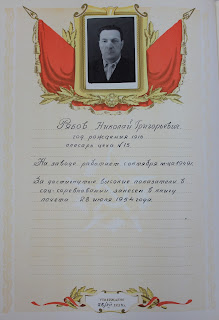 Рябов Николай Григорьевич.
год рождения 1916
слесарь цеха № 15.
На заводе работает с октября м-ца 1929 г.
За достигнутые высокие показатели в
соц. соревновании занесен в книгу
почета 28 июля 1954 года.